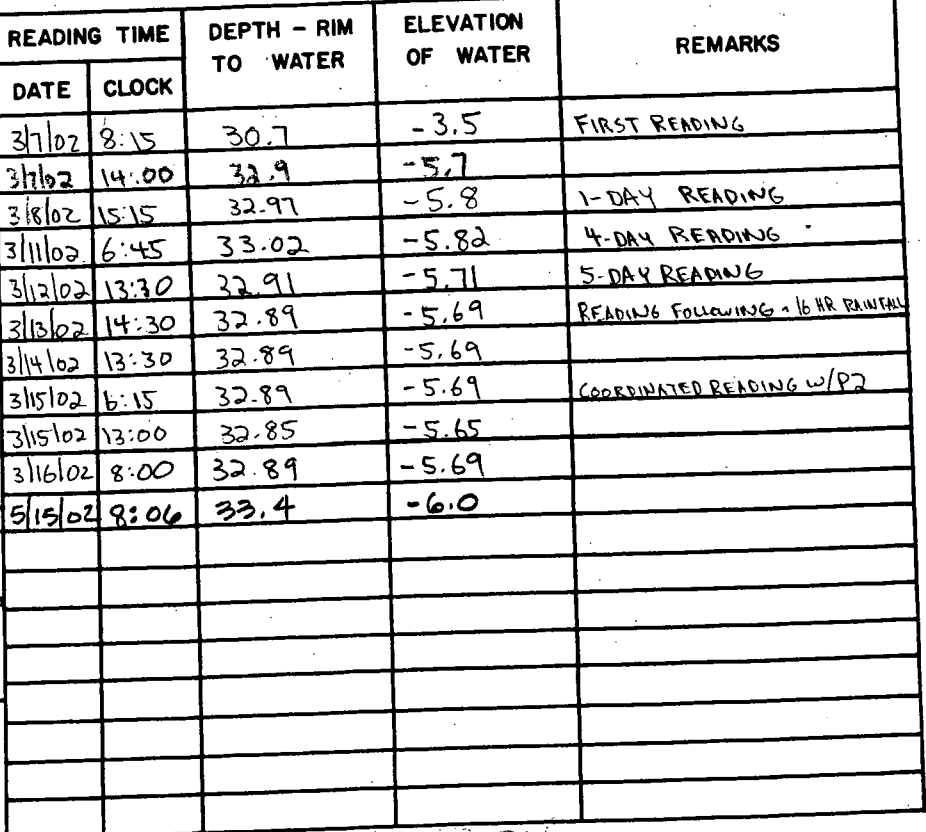 READING TIME DEPTH - RIM TO WATER ELEVATION OF WATER REMARKS
DATE CLOCK
3/7/02 8:15 30.7 -3.5 FIRST READING
3/7/02 14:00 32.9 -5.7
3/8/02 15:15 32.97 -5.8 1-DAY READING
3/11/02 6:45 33.02 -5.82 4-DAY READING
3/12/02 13:30 32.91 -5.71 5-DAY READING
3/13/02 14:30 32.89 -5.69 READING FOLLOWING ~ 16 HR RAINFALL
3/14/02 13:30 32.89 -5.69
3/15/02 6:15 32.89 -5.69 COORDINATED READING W/P2
3/15/02 13:00 32.85 -5.65
3/16/02 8:00 32.89 -5.69
5/15/02 8:06 33.4 -6.0